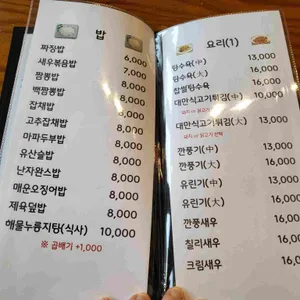 밥
짜장밥 6,000
새우볶음밥 7,000
짬뽕밥 8,000
백짬뽕밥 8,000
잡채밥 8,000
고추잡채밥 8,000
마파두부밥 8,000
유산슬밥 8,000
난자완스밥 8,000
매운오징어밥 8,000
제육덮밥 8,000
해물누룽지탕(식사) 10,000
※ 곱배기 +1,000
요리(1)
탕수육(中) 13,000
탕수육(大) 16,000
찹쌀탕수육 16,000
대만식고기튀김(中) 10,000
대만식고기튀김(大) 16,000
깐풍기(中) 13,000
깐풍기(大) 16,000
유린기(中) 13,000
유린기(大) 16,000
깐풍새우 16,0
칠리새우 16,0
크림새우 16,